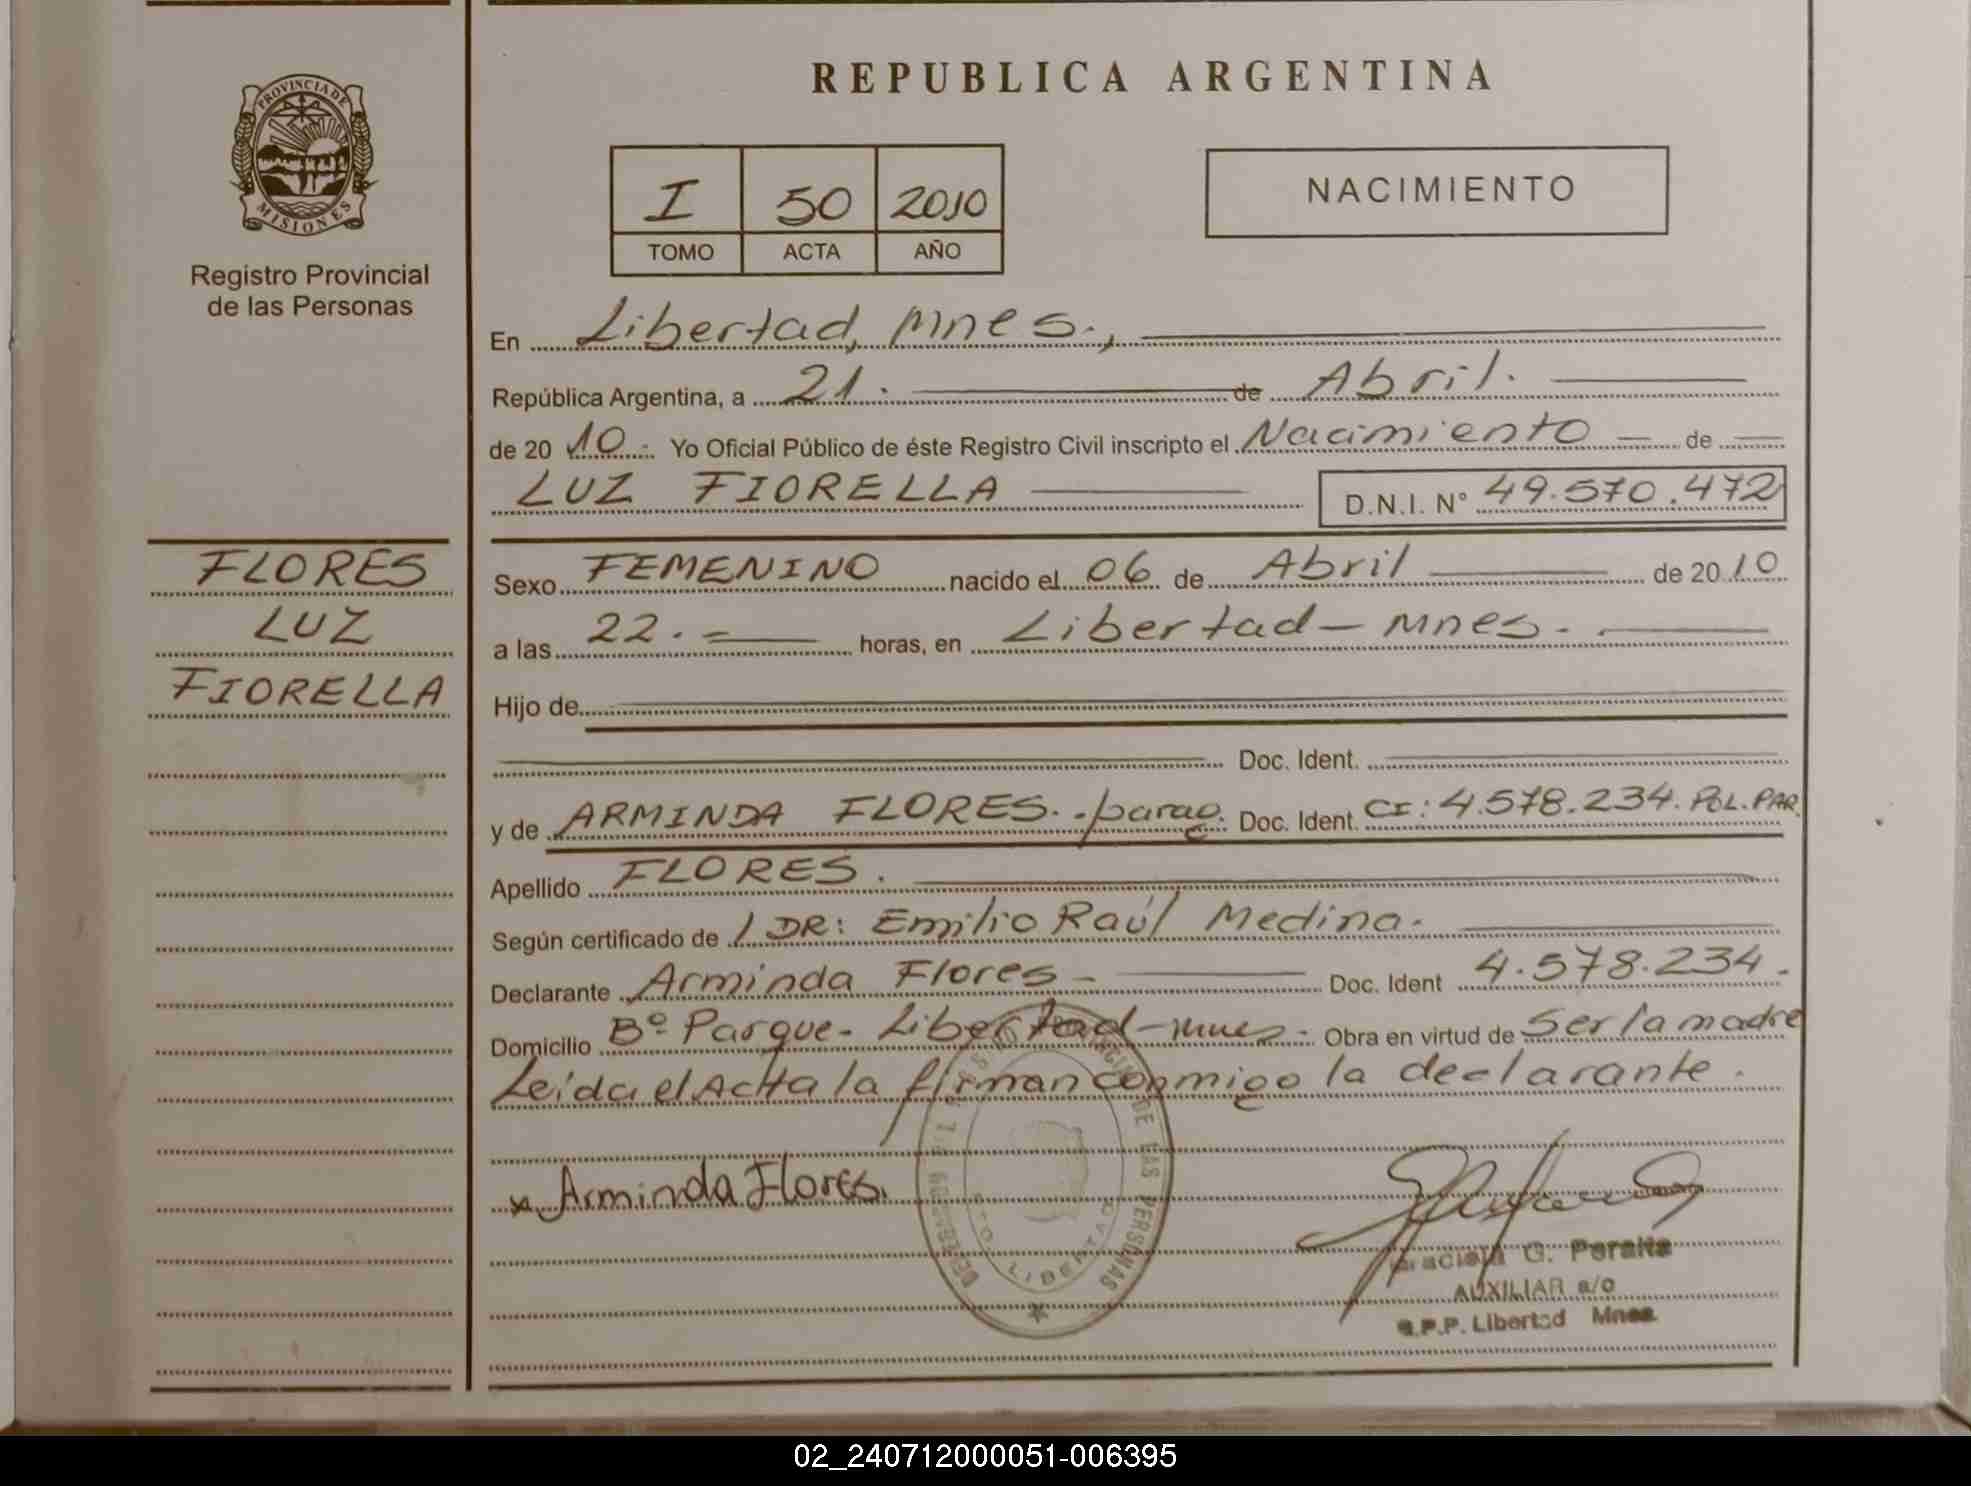 REPUBLICA ARGENTINA
PROVINCIA DE
MISIONES
Registro Provincial
de las Personas
I 50 2010
TOMO ACTA AÑO
NACIMIENTO
En Libertad, Mnes.,
República Argentina, a 21. de Abril.
de 20 10.- Yo Oficial Público de éste Registro Civil inscripto el Nacimiento de
LUZ FIORELLA D.N.I. N° 49.570.472
FLORES
LUZ
FIORELLA
Sexo FEMENINO nacido el 06 de Abril de 20 10
a las 22.- horas, en Libertad - Mnes.
Hijo de
Doc. Ident.
y de ARMINDA FLORES.- parag. Doc. Ident. CI: 4.578.234. POL. PAR.
Apellido FLORES.
Según certificado de / DR: Emilio Raúl Medina.
Declarante Arminda Flores - Doc. Ident 4.578.234.
Domicilio Bº Parque - Libertad - mnes. Obra en virtud de Ser la madre
Leída el Acta la firman conmigo la declarante.
x Arminda Flores.
DE LAS PERSONAS
LIBERTAD
Graciela G. Peralta
AUXILIAR a/c
R.P.P. Libertad Mnes.
02_240712000051-006395